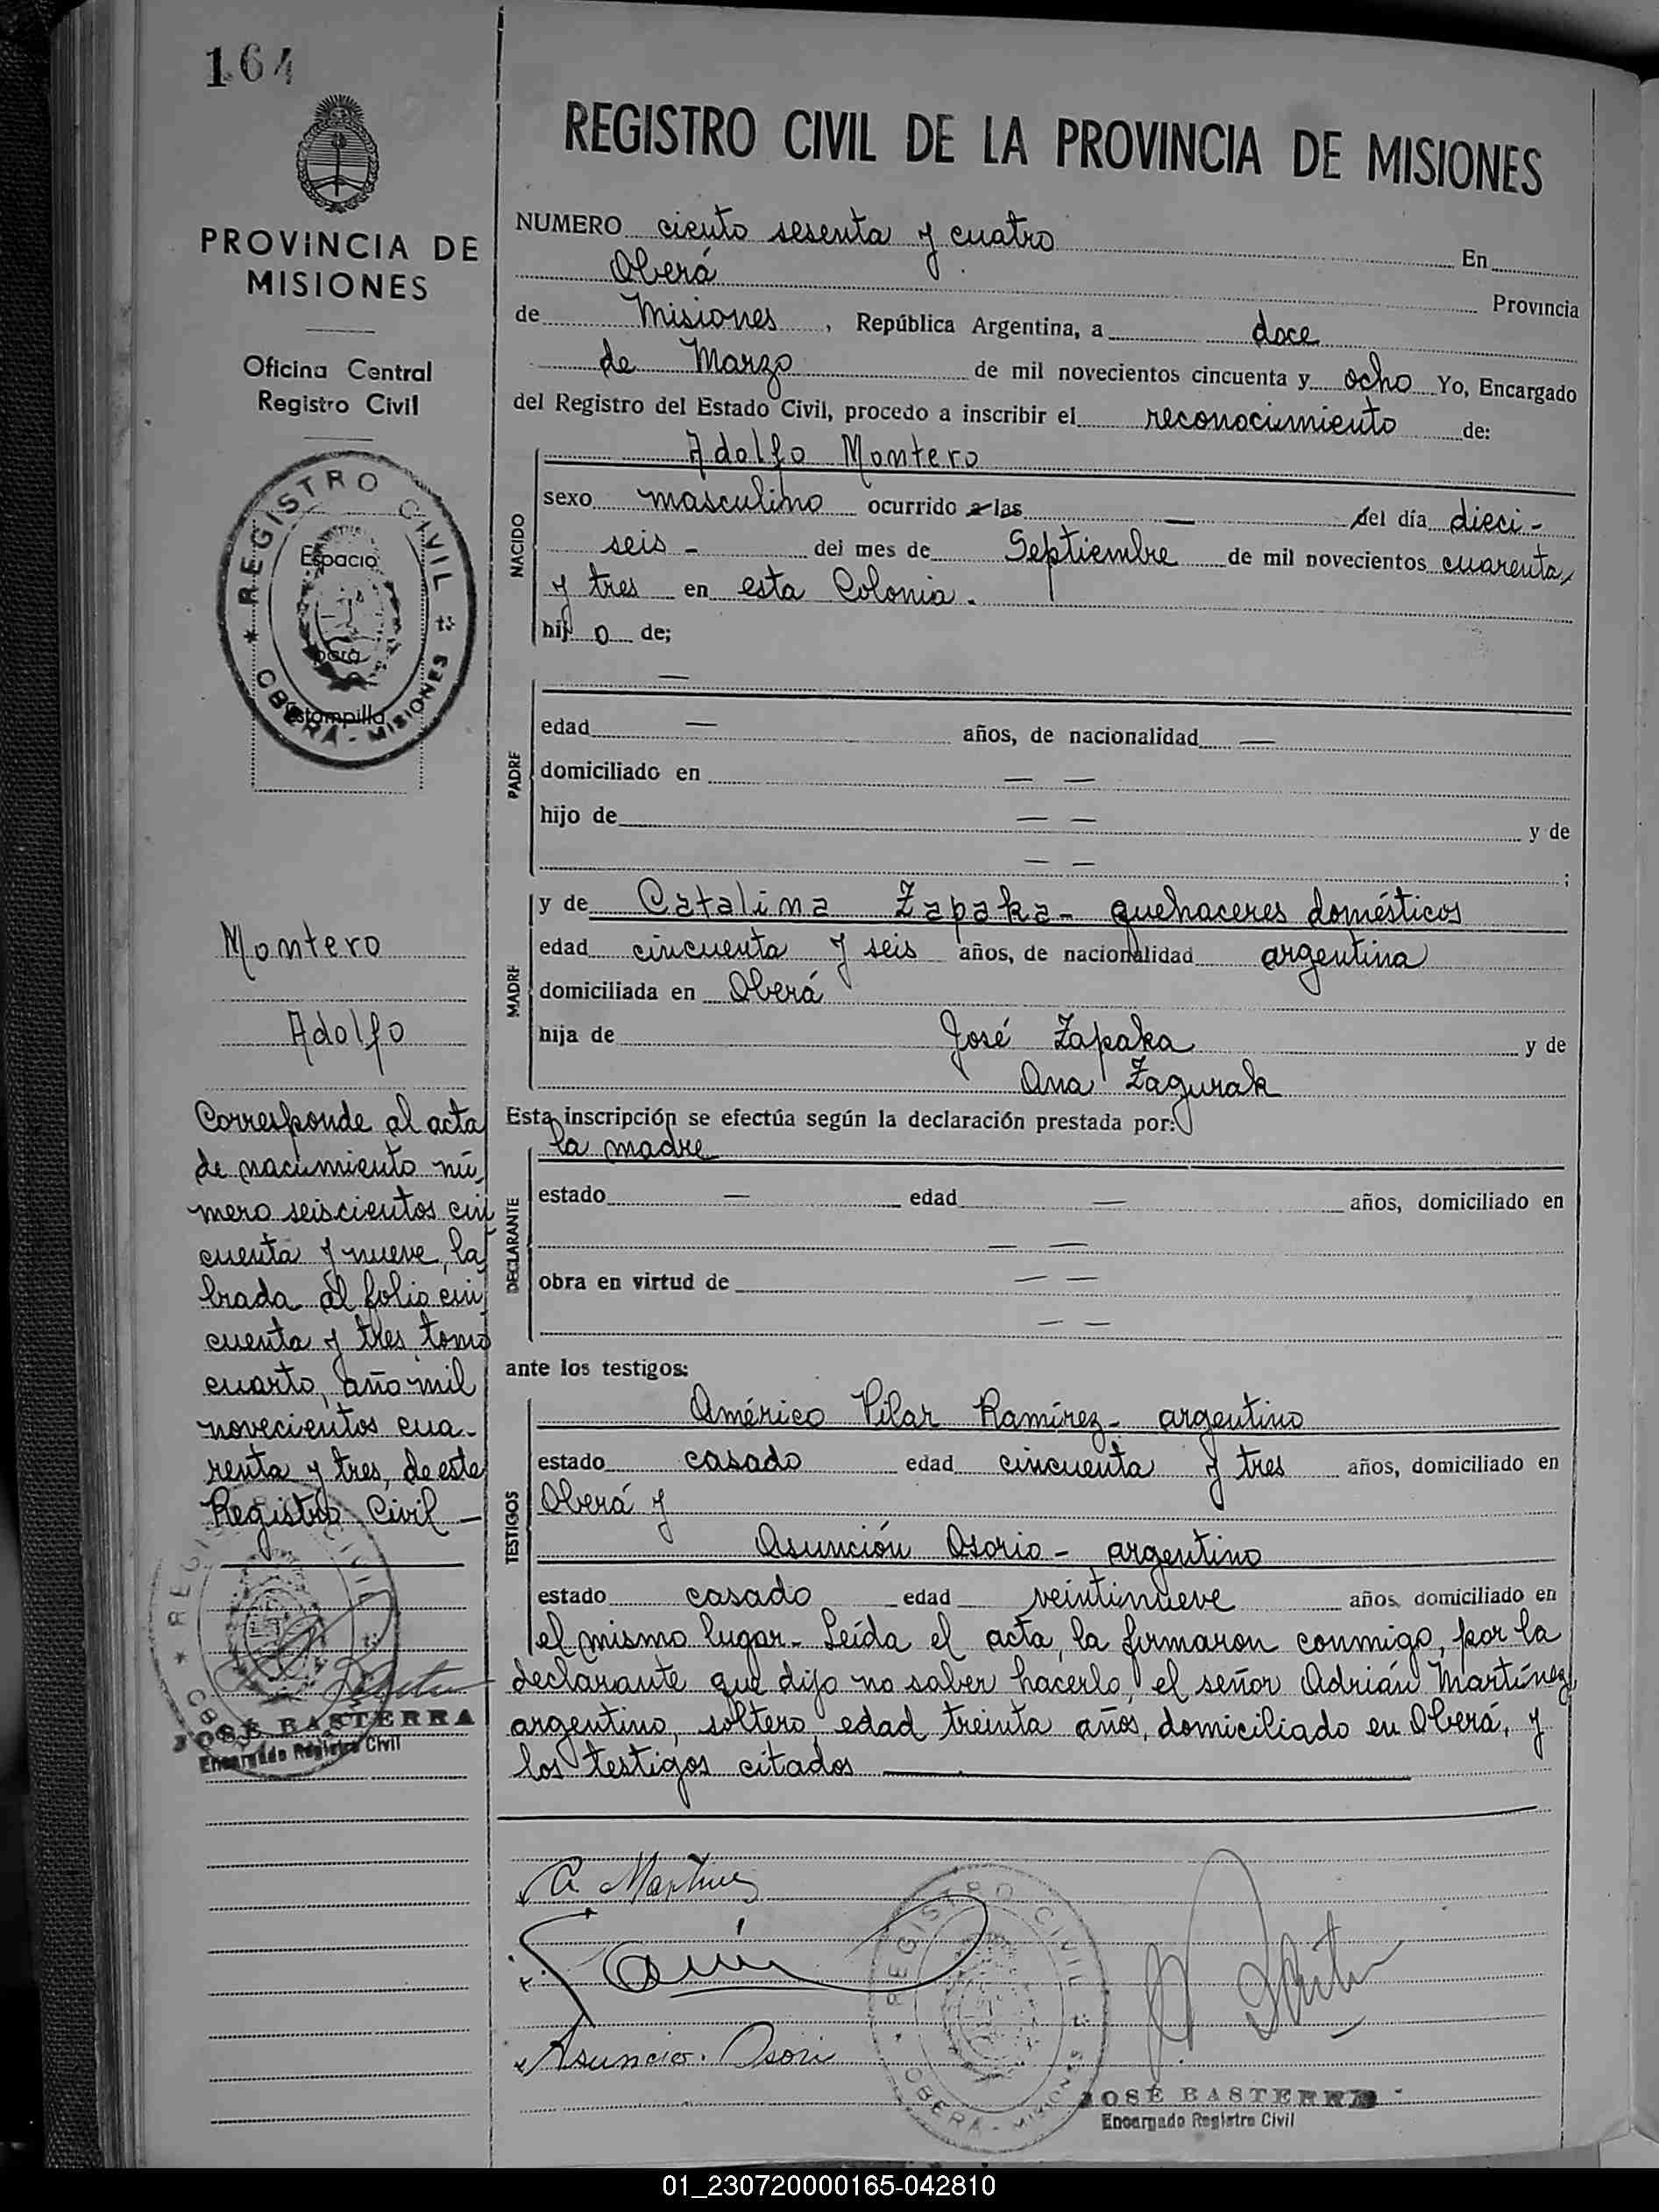 164
PROVINCIA DE
MISIONES
Oficina Central
Registro Civil
REGISTRO CIVIL
Espacio
para
estampilla
OBERÁ - MISIONES
Montero
Adolfo
Corresponde al acta
de nacimiento nú
mero seiscientos cin
cuenta y nueve, la
brada al folio cin
cuenta y tres tomo
cuarto, año mil
novecientos cua-
renta y tres, de este
Registro Civil —
JOSÉ BASTERRA
Encargado Registro Civil
REGISTRO CIVIL DE LA PROVINCIA DE MISIONES
NUMERO ciento sesenta y cuatro En
Oberá Provincia
de Misiones, República Argentina, a doce
de Marzo de mil novecientos cincuenta y ocho Yo, Encargado
del Registro del Estado Civil, procedo a inscribir el reconocimiento de:
Adolfo Montero
NACIDO
sexo masculino ocurrido a las — del día dieci-
seis - del mes de Septiembre de mil novecientos cuarenta
y tres en esta Colonia.
hij o de;
—
PADRE
edad — años, de nacionalidad —
domiciliado en — —
hijo de — — y de
— — ;
MADRE
y de Catalina Zapaka - quehaceres domésticos
edad cincuenta y seis años, de nacionalidad argentina
domiciliada en Oberá
hija de José Zapaka y de
Ana Zagurak
Esta inscripción se efectúa según la declaración prestada por:
la madre
DECLARANTE
estado — edad — años, domiciliado en
— —
obra en virtud de — —
— —
ante los testigos:
TESTIGOS
Américo Pilar Ramírez - argentino
estado casado edad cincuenta y tres años, domiciliado en
Oberá y
Asunción Osorio - argentino
estado casado edad veintinueve años, domiciliado en
el mismo lugar - Leída el acta, la firmaron conmigo, por la
declarante que dijo no saber hacerlo, el señor Adrián Martínez
argentino, soltero edad treinta años, domiciliado en Oberá, y
los testigos citados
A. Martinez
REGISTRO CIVIL
OBERÁ - MISIONES
JOSÉ BASTERRA
Encargado Registro Civil
01_230720000165-042810